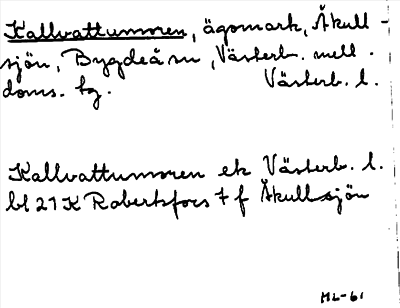 Kallvattumoren, ägomark, Åkull-
sjön, Bygdeå sn, Västerb. mell.
doms. tg. Västerb. l.
Kallvattumoren ek Västerb. l.
bl 21 K Robertsfors 7 f Åkullsjön
ML-61